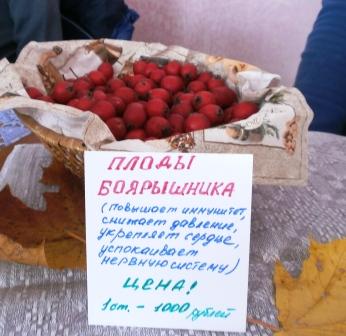 ПЛОДЫ
БОЯРЫШНИКА
(повышает иммунитет,
снижает давление,
укрепляет сердце,
успокаивает
нервную систему)
ЦЕНА!
1 ст. - 1000 рублей